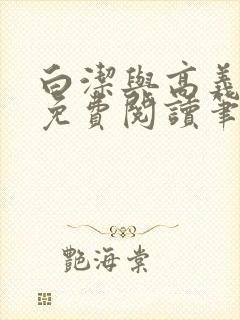 白潔與高義
免費閱讀筆
艷海棠